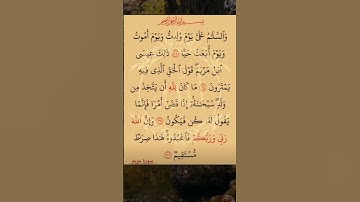 بسم الله الرحمن الرحيم
وَٱلسَّلَٰمُ عَلَىَّ يَوْمَ وُلِدتُّ وَيَوْمَ أَمُوتُ
وَيَوْمَ أُبْعَثُ حَيًّا ۝ ذَٰلِكَ عِيسَى
ٱبْنُ مَرْيَمَ قَوْلَ ٱلْحَقِّ ٱلَّذِى فِيهِ
يَمْتَرُونَ ۝ مَا كَانَ لِلَّهِ أَن يَتَّخِذَ مِن
وَلَدٍ سُبْحَٰنَهُۥٓ إِذَا قَضَىٰٓ أَمْرًا فَإِنَّمَا
يَقُولُ لَهُۥ كُن فَيَكُونُ ۝ وَإِنَّ ٱللَّهَ
رَبِّى وَرَبُّكُمْ فَٱعْبُدُوهُ هَٰذَا صِرَٰطٌ
مُّسْتَقِيمٌ ۝
سورة مريم